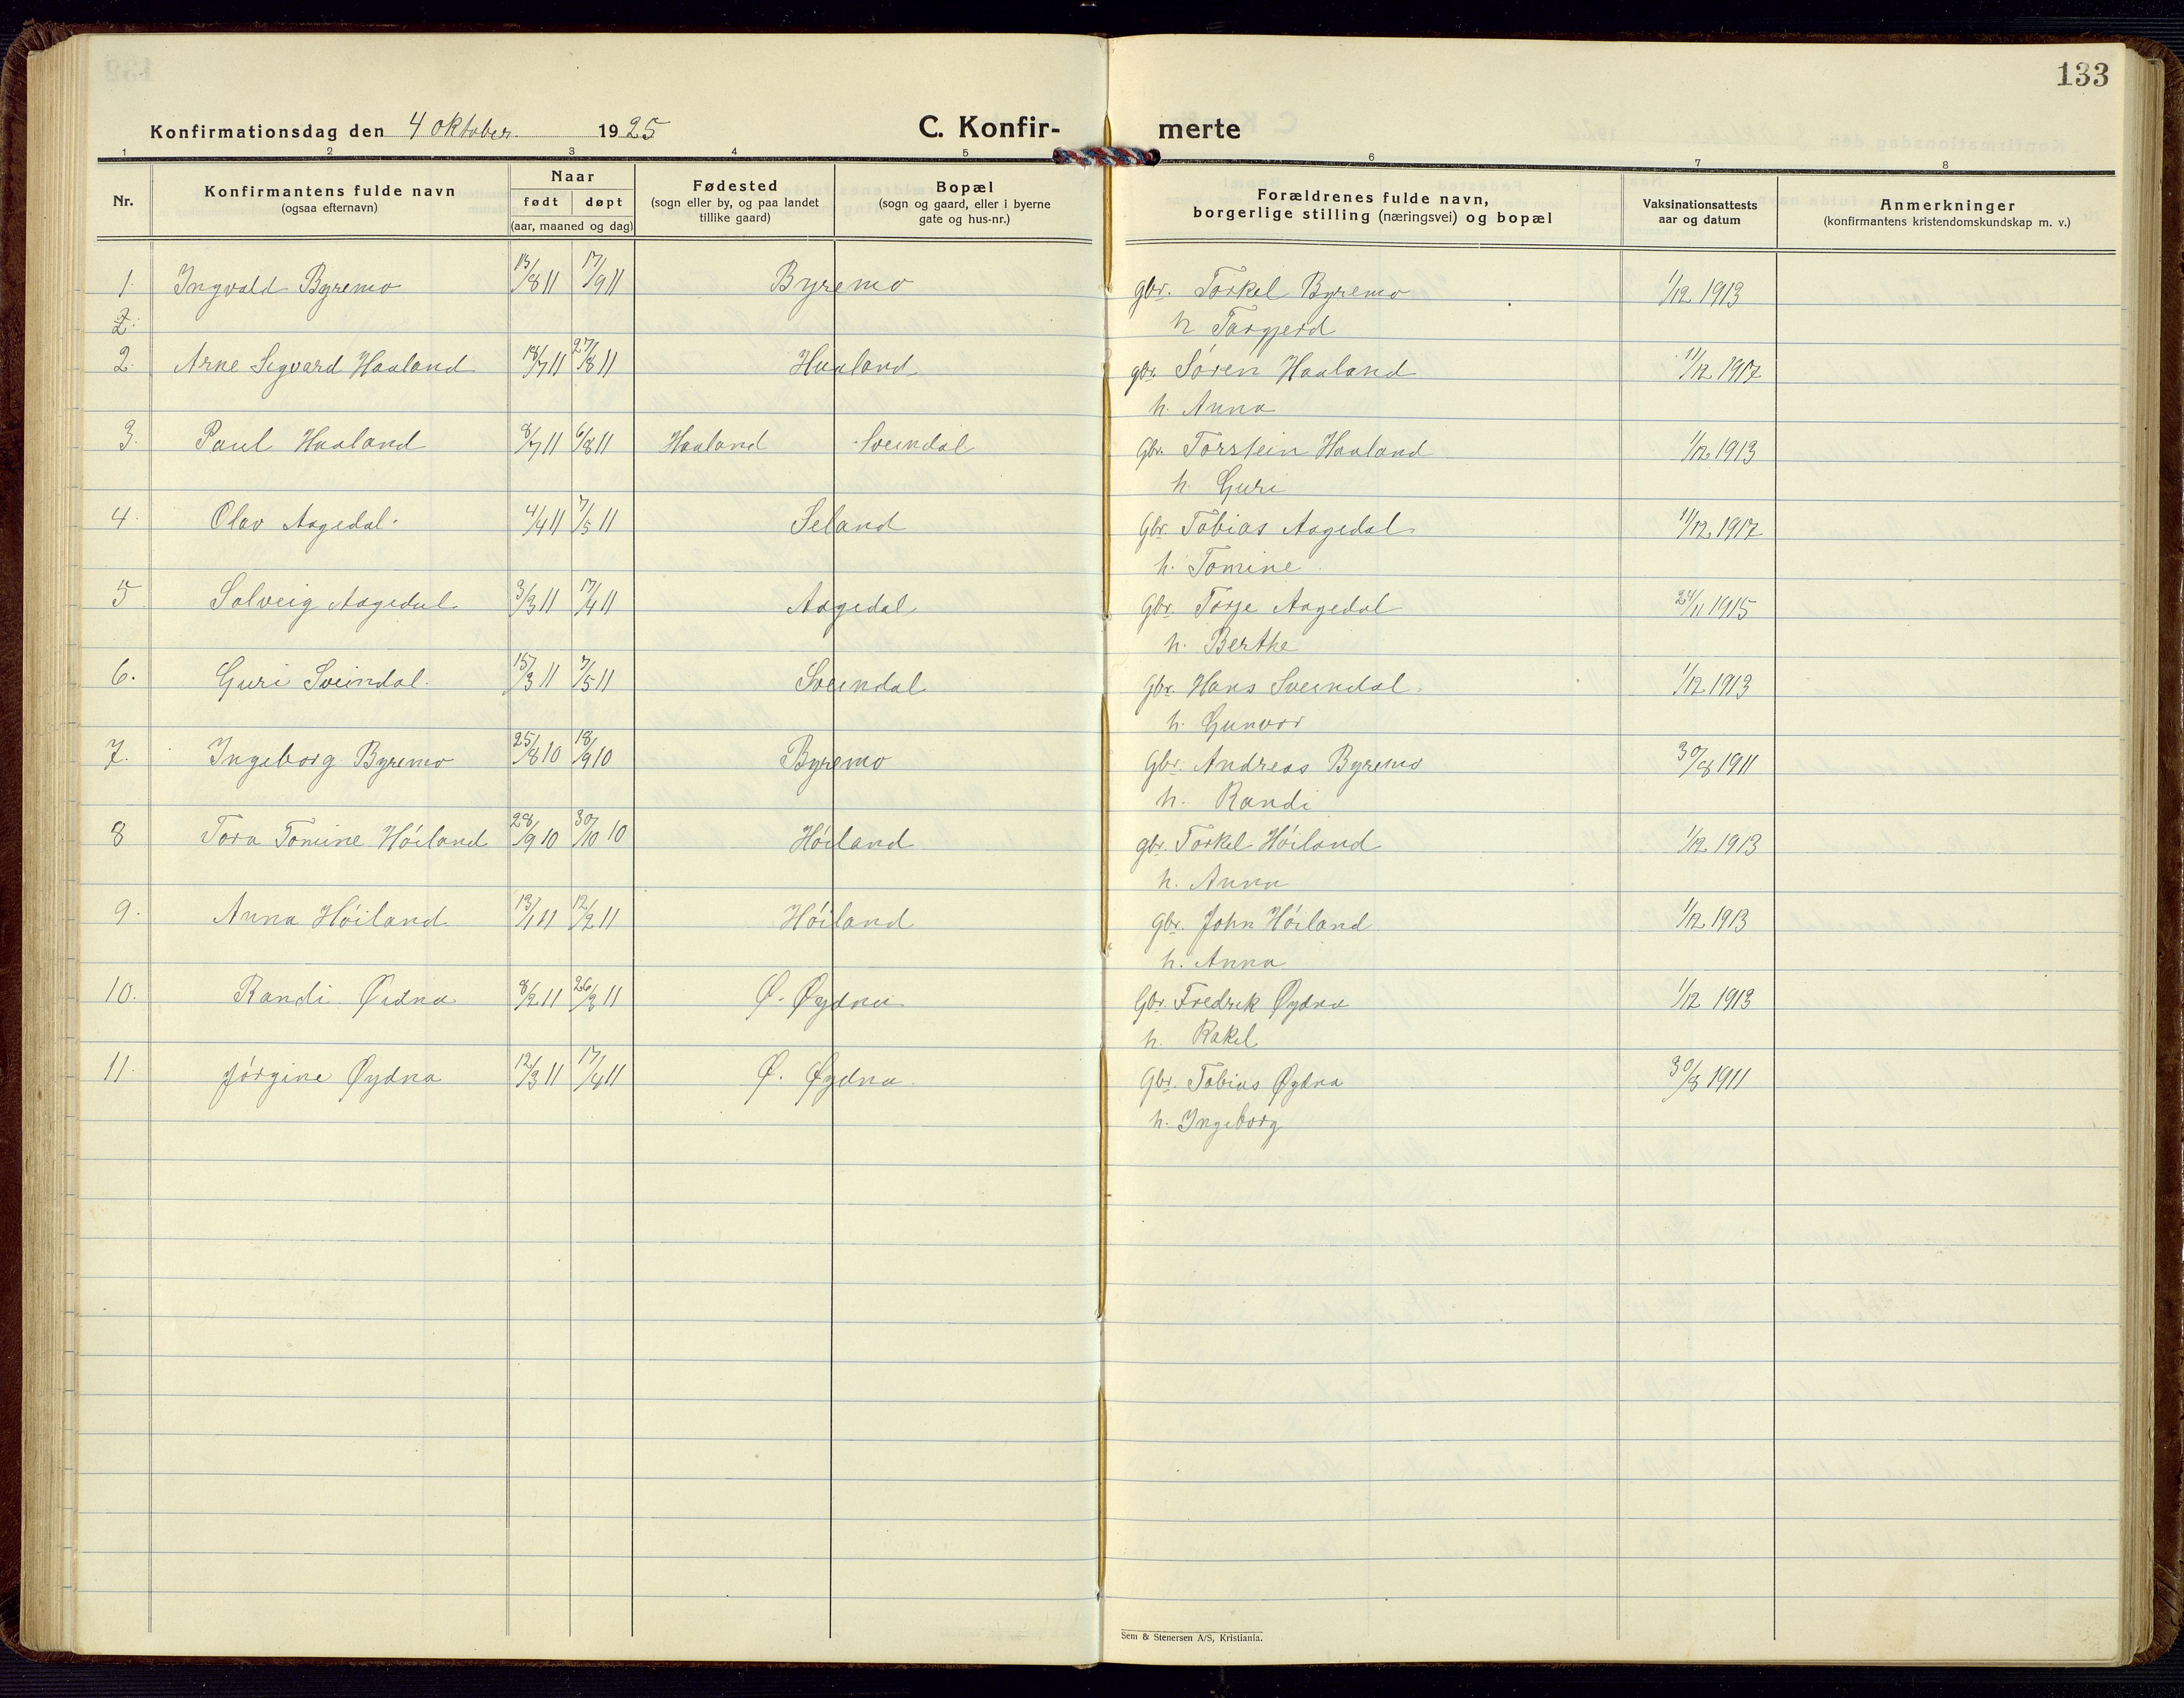 133
Konfirmationsdag den 4 oktober. 1925 C. Konfir- merte
1 2 3 4 5 6 7 8
Nr. Konfirmantens fulde navn (ogsaa efternavn) Naar født døpt (aar, maaned og dag) Fødested (sogn eller by, og paa landet tillike gaard) Bopæl (sogn og gaard, eller i byerne gate og hus-nr.) Forældrenes fulde navn, borgerlige stilling (næringsvei) og bopæl Vaksinationsattests aar og datum Anmerkninger (konfirmantens kristendomskundskap m. v.)
1. Ingvald Byremo 13/8 11 17/9 11 Byremo gbr. Torkel Byremo 1/12 1913
2. h Targjerd
2. Arne Sigvard Haaland 18/7 11 27/8 11 Haaland gbr. Søren Haaland 11/12 1917
h. Anna
3. Paul Haaland 8/7 11 6/8 11 Haaland Sveindal Gbr. Torstein Haaland 1/12 1913
h. Guri
4. Olav Aagedal. 4/4 11 7/5 11 Seland Gbr. Tobias Aagedal 11/12 1917
h. Tomine.
5 Solveig Aagedal 3/3 11 17/4 11 Aagedal Gbr. Torje Aagedal 24/11 1915
h. Berthe
6. Guri Sveindal. 15/3 11 7/5 11 Sveindal Gbr. Hans Sveindal. 1/12 1913
h. Gunvor
7. Ingeborg Byremo 25/8 10 18/9 10 Byremo Gbr. Andreas Byremo 30/8 1911
h. Randi
8 Tora Tomine Høiland 28/9 10 30/10 10 Høiland gbr. Torkel Høiland 1/12 1913
h. Anna
9. Anna Høiland 13/1 11 12/2 11 Høiland Gbr. John Høiland 1/12 1913
h. Anna
10. Randi Øidna 8/2 11 26/3 11 Ø. Øydna Gbr. Fredrik Øydna 1/12 1913
h. Rakel
11. Jørgine Øydna 12/3 11 17/4 11 Ø. Øydna. Gbr. Tobias Øydna 30/8 1911
h. Ingeborg
Sem & Stenersen A/S, Kristiania.